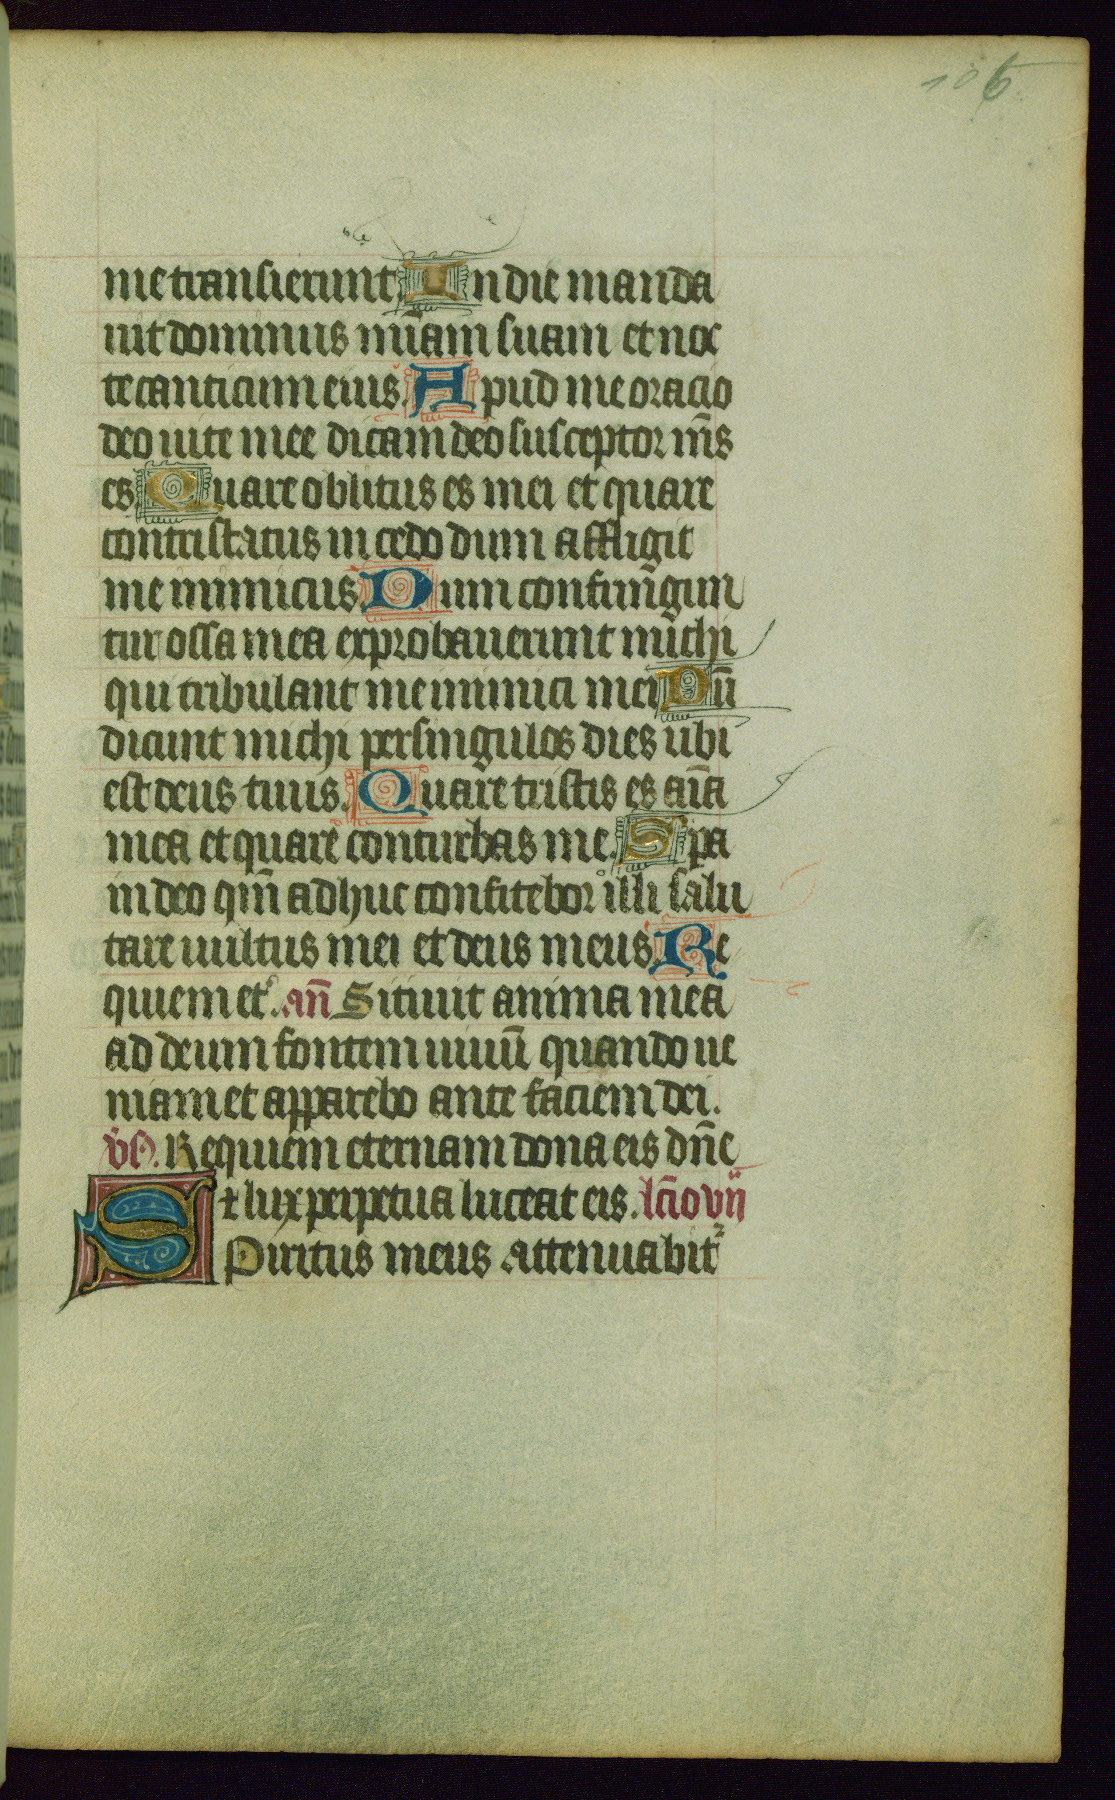 106
me transierunt In die manda
uit dominus miam suam et noc
te canticum eius. Apud me oracio
deo uite mee dicam deo susceptor ms
es. Quare oblitus es mei et quare
contristatus incedo dum affligit
me inimicus. Dum confringun
tur ossa mea exprobauerunt michi
qui tribulant me inimici mei Dū
dicunt michi per singulos dies ubi
est deus tuus. Quare tristis es aīa
mea et quare conturbas me. Spa
in deo qm̄ adhuc confitebor illi salu
tare uultus mei et deus meus. Re
quiem et. añ Sitiuit anima mea
ad deum fontem uiuū quando ue
niam et apparebo ante faciem dei.
Requiem eternam dona eis dn̄e
et lux perpetua luceat eis. lc̄io vij
Spiritus meus attenuabit᷑